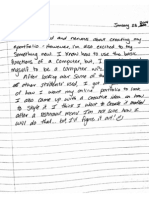 January 26
and nervous about creating my
eportfolio; however, I'm also excited to try
something new. I know how to use the basic
functions of a computer, but, I
myself to be a computer
After looking over some of the
other students used, I got
of how I want my online portfolio to
I also came up with a creative idea on how
to style it. I think I want to create it
after a restaurant menu. I'm not sure how I
will do that... but I'll figure it out!